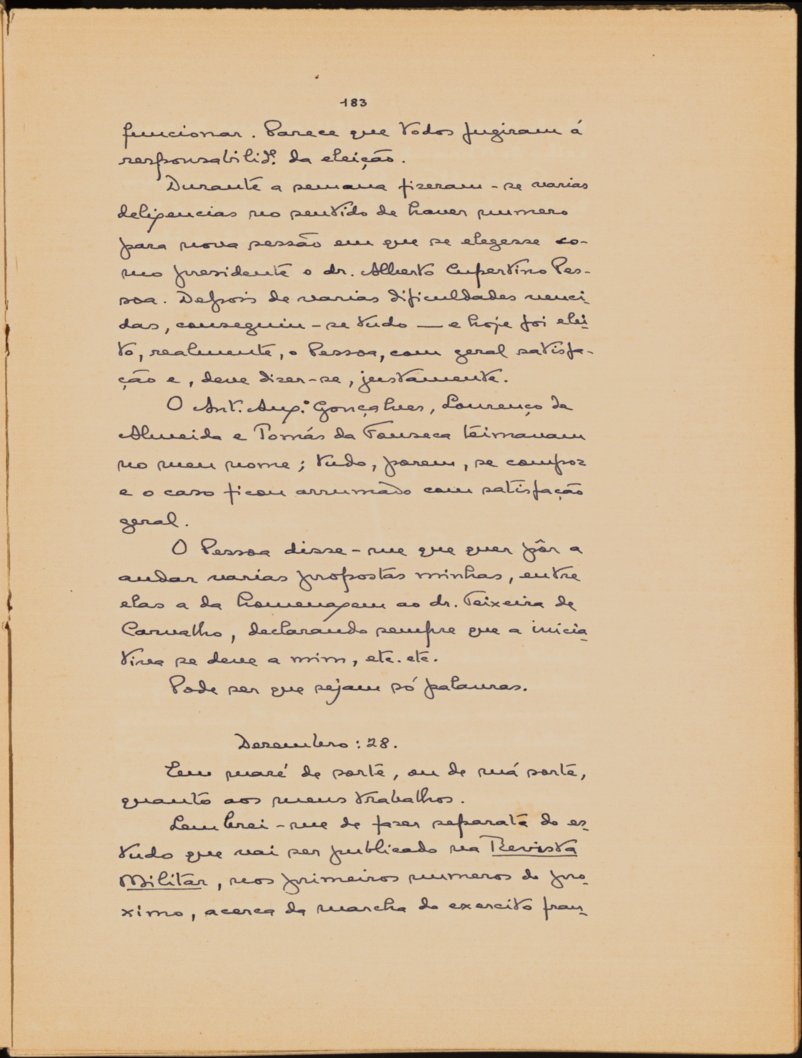 183
funcionar. Parece que todos fugiram á
responsabilid.e da eleição.
Durante a semana fizeram-se varias
deligencias no sentido de haver numero
para nova sessão em que se elegesse co-
mo presidente o dr. Alberto Cupertino Pes-
soa. Depois de varias dificuldades venci-
das, conseguiu-se tudo — e hoje foi elei-
to, realmente, o Pessoa, com geral satisfa-
ção e, deve dizer-se, justamente.
O Ant. Aug.º Gonçalves, Lourenço de
Almeida e Tomás da Fonseca teimavam
no meu nome; tudo, porem, se compoz
e o caso ficou arrumado com satisfação
geral.
O Pessoa disse-me que quer pôr a
andar varias propostas minhas, entre
elas a da homenagem ao dr. Teixeira de
Carvalho, declarando sempre que a inicia-
tiva se deve a mim, etc. etc.
Pode ser que sejam só palavras.
Dezembro: 28.
Em maré de sorte, ou de má sorte,
quanto aos meus trabalhos.
Lembrei-me de fazer separata do es-
tudo que vai ser publicado na Revista
Militar, nos primeiros numeros do pro-
ximo, acerca da marcha do exercito fran-